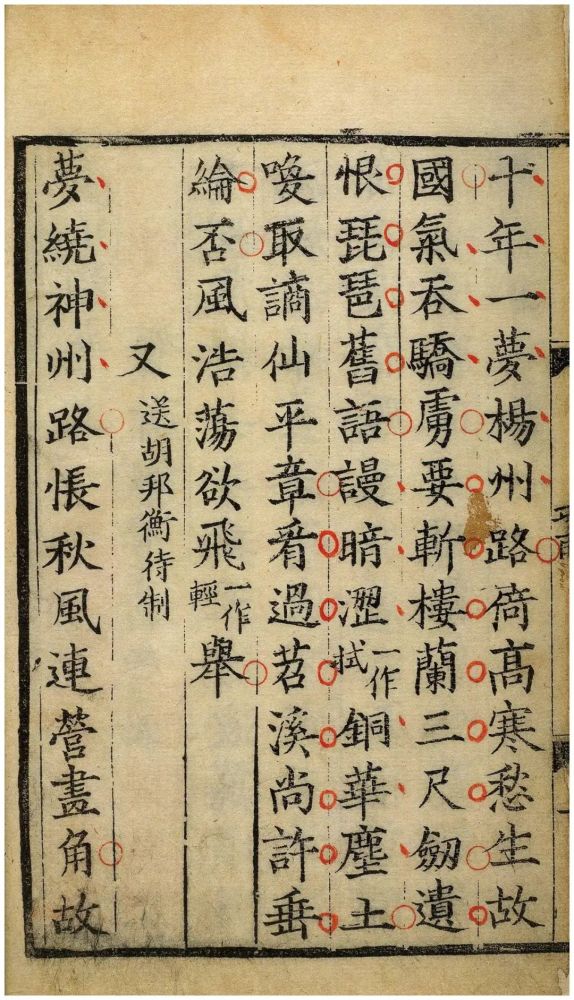 十年一夢楊州路倚高寒愁生故
國氣吞驕虜要斬樓蘭三尺劒遺
恨琵琶舊語謾暗澀一作拭銅華塵土
喚取謫仙平章看過苕溪尚許垂
綸否風浩蕩欲飛一作輕舉
又 送胡邦衡待制
夢繞神州路悵秋風連營畫角故